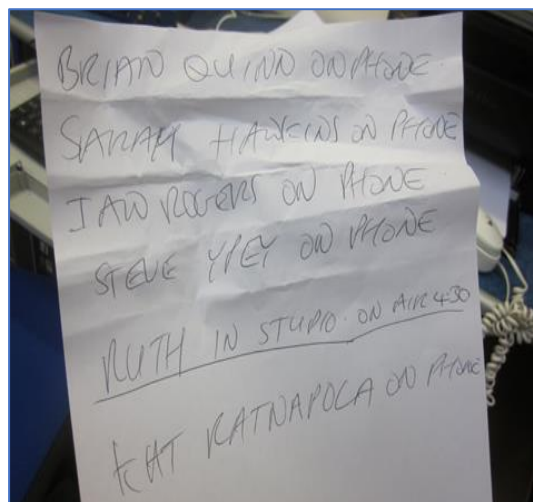 BRIAN QUINN ON PHONE.
SARAH HAWKINS ON PHONE
IAN ROGERS ON PHONE.
STEVE YPEY ON PHONE
RUTH IN STUDIO. ON AIR 4.30
KAT RATNAPOLA ON PHONE